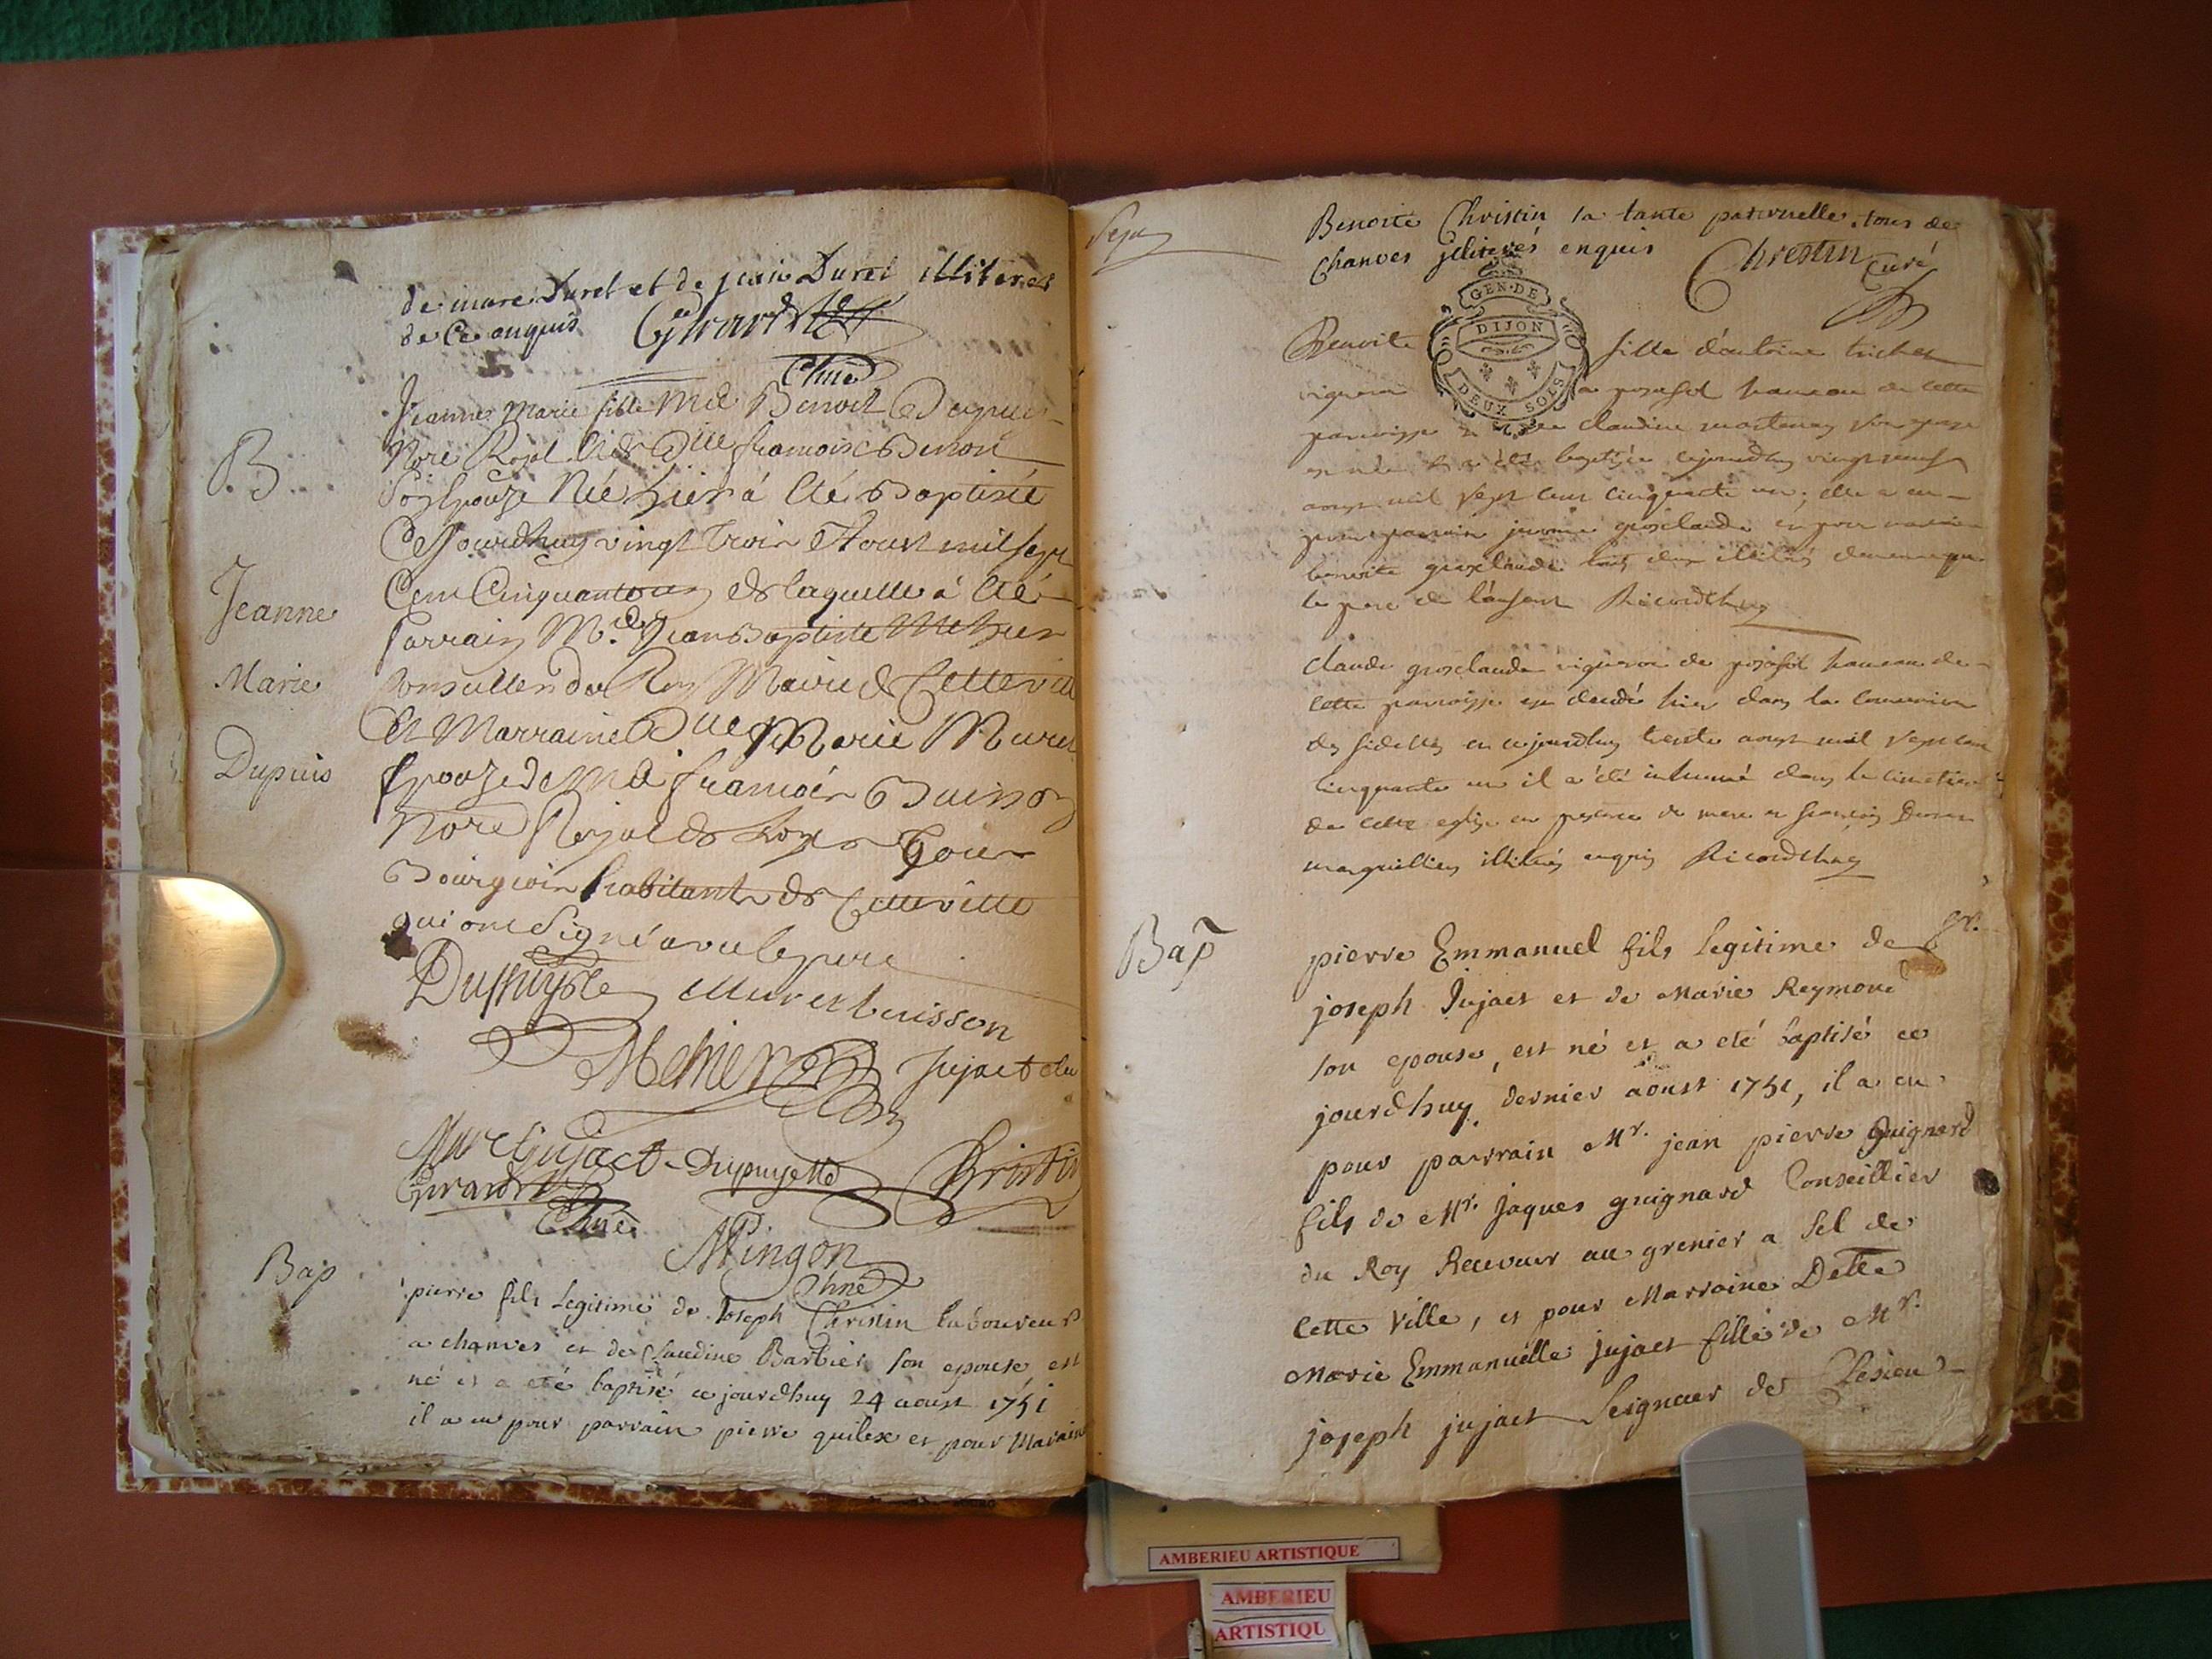 de marc Duret et de jean Duret illiterés
de ce enquis Girard
Chne
B
Jeanne Marie fille Mre Benoit Dupuis
Nore Royal et de Dlle francoise Benoit
son Epouze Née hier á Eté Baptisée
Cejourdhuy vingt trois Aoust mil sept
Jeanne
Cent Cinquante un et laquelle á Eté
parrain Mr. Jean Baptiste Mehier
Marie
Conseiller du Roy Maire de Cette ville
Et Marraine Dlle Marie Muret
Dupuis
Epouze de Me francois Buisson
Nore Royal de
Bourgeois habitants de Cette ville
qui ont Signé avec le pere
Dupuys Muret buisson
Mehier Jujact
Jujact Dupuy Christin
Girard
Chne
Mingon
Chne
Bap
pierre fils Legitime de Joseph Christin Laboureur
a chanves et de Claudine Barbier son epouse est
né et a eté baptisé ce jourdhuy 24 aoust 1751
il a eu pour parrain pierre guilex et pour Maraine
Benoite Christin sa tante paternelle tous de
Chanves enquis Chrestin Curé
GEN·DE
DIJON
DEUX SOLS
Benoite fille d'antoine
vigneron a posafol hameau de cette
paroisse claudine son epouse
est née et a été baptisée cejourdhuy vingt neuf
aoust mil sept cent cinquante un, elle a eu
pour parrain grosclaude et pour maraine
benoite grosclaude tous deux illiterés
le pere de l'enfant Ricard
claude grosclaude vigneron de posafol hameau de
cette paroisse est decedé hier dans la communion
des fidelles et cejourdhuy trente aoust mil sept cent
cinquante un il a été inhumé dans le cimetiere
de cette eglise en presence de marc et francois Duret
marguilliers illiterés enquis Ricard
Bap
pierre Emmanuel fils Legitime de Sr.
joseph Jujact et de Marie Reymond
son epouse, est né et a eté baptisé ce
jourdhuy dernier aoust 1751, il a eu
pour parrain Mr. jean pierre guignard
fils de Mr. jaques guignard Conseillier
du Roy Receveur au grenier a sel de
cette Ville, et pour Marraine Delle
Marie Emmanuelle jujact fille de Mr.
joseph jujact Seigneur de
AMBERIEU ARTISTIQUE
AMBERIEU
ARTISTIQU